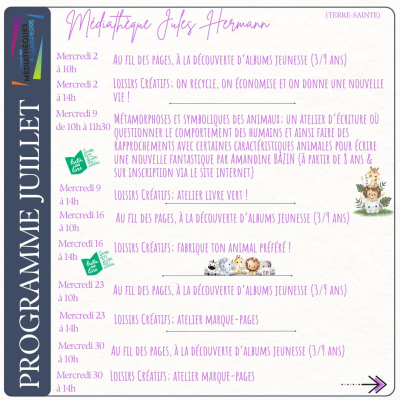 Médiathèque Jules Hermann
(TERRE-SAINTE)
MÉDIATHÈQUES
PROGRAMME JUILLET
Mercredi 2
à 10h
Au fil des pages, à la découverte d'albums jeunesse (3/9 ans)
Mercredi 2
à 14h
Loisirs Créatifs; on recycle, on économise et on donne une nouvelle
vie !
Mercredi 9
de 10h à 11h30
Métamorphoses et symboliques des animaux: un atelier d'écriture où
questionner le comportement des humains et ainsi faire des
rapprochements avec certaines caractéristiques animales pour écrire
une nouvelle fantastique par Amandine BAZIN (à partir de 8 ans &
sur inscription via le site internet)
Mercredi 9
à 14h
Loisirs Créatifs; atelier livre vert !
Mercredi 16
à 10h
Au fil des pages, à la découverte d'albums jeunesse (3/9 ans)
Mercredi 16
à 14h
Loisirs Créatifs; fabrique ton animal préféré !
Mercredi 23
à 10h
Au fil des pages, à la découverte d'albums jeunesse (3/9 ans)
Mercredi 23
à 14h
Loisirs Créatifs; atelier marque-pages
Mercredi 30
à 10h
Au fil des pages, à la découverte d'albums jeunesse (3/9 ans)
Mercredi 30
à 14h
Loisirs Créatifs; atelier marque-pages